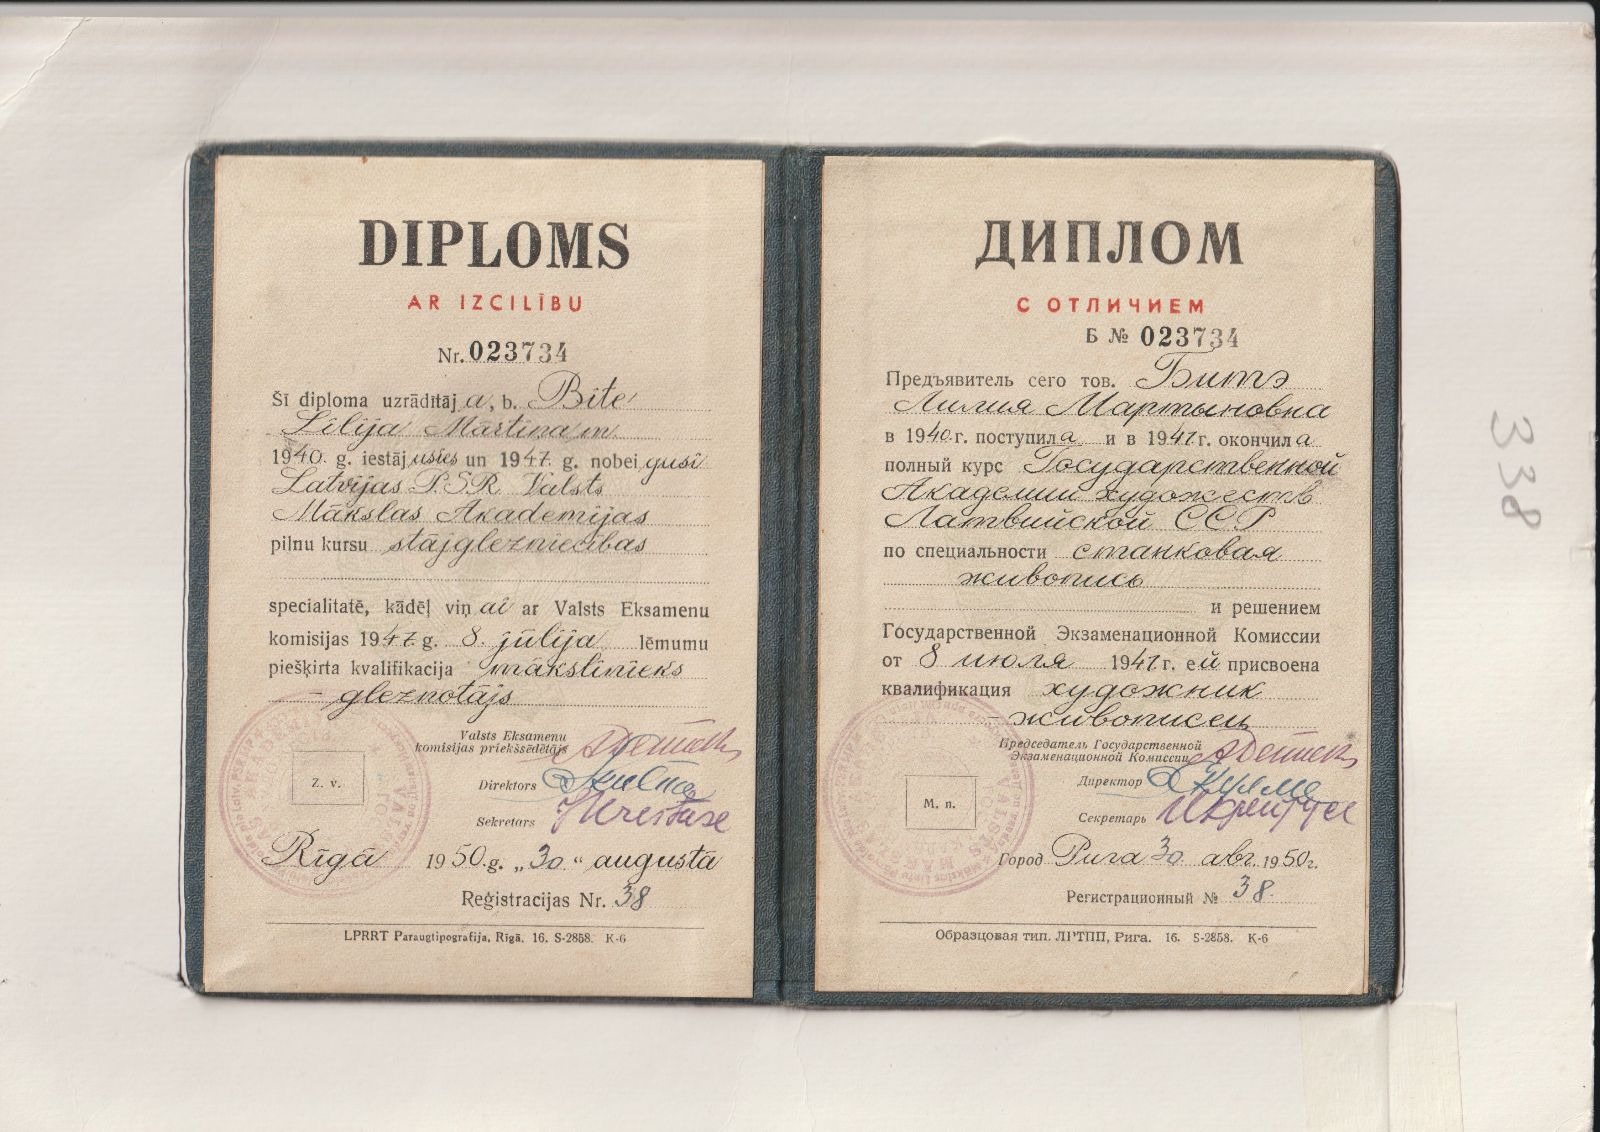 DIPLOMS
AR IZCILĪBU
Nr. 023734
Šī diploma uzrādītāja, b. Bite
Lilija Mārtiņa m.
1940. g. iestājusies un 1947. g. nobeigusi
Latvijas P.S.R. Valsts
Mākslas Akadēmijas
pilnu kursu stājglezniecības
specialitatē, kādēļ viņai ar Valsts Eksamenu
komisijas 1947. g. 8. jūlija lēmumu
piešķirta kvalifikacija mākslinieks
— gleznotājs
Valsts Eksamenu
komisijas priekšsēdētājs
Direktors
Sekretars
Z. v.
Rīgā 1950. g. „30." augustā
Reģistracijas Nr. 38
LPRRT Paraugtipografija, Rīgā. 16. S-2858. K-6
ДИПЛОМ
С ОТЛИЧИЕМ
Б № 023734
Предъявитель сего тов. Битэ
Лилия Мартыновна
в 1940. г. поступила и в 1947. г. окончила
полный курс Государственной
Академии художеств
Латвийской ССР
по специальности станковая
живопись
и решением
Государственной Экзаменационной Комиссии
от 8 июля 1947. г. ей присвоена
квалификация художник
— живописец
Председатель Государственной
Экзаменационной Комиссии
Директор
Секретарь
М. п.
Город Рига 30 авг. 1950 г.
Регистрационный № 38.
Образцовая тип. ЛРТПП, Рига. 16. S-2858. К-6
338